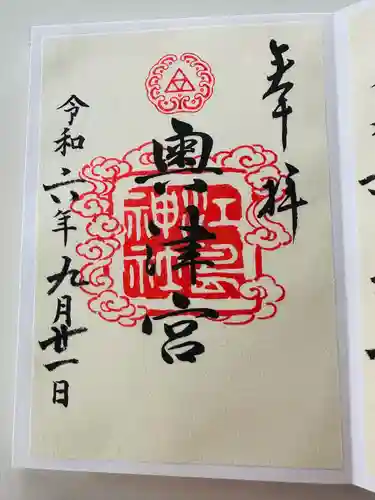 奉拝
奥津宮
江島神社
令和六年九月廿一日